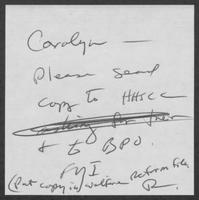 Carolyn —
Please send
copy to HHS cc
asking for their
& to BPO.
FYI
(Put copy in welfare reform file.
R.